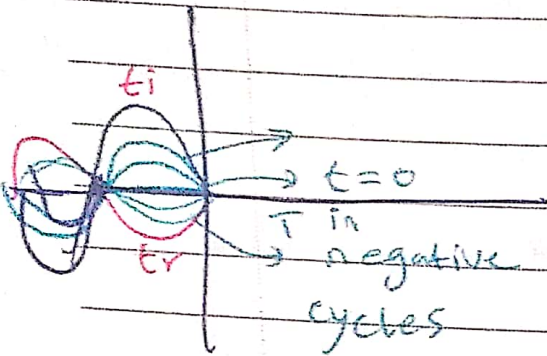 ti
t = 0
T in
tr
negative
cycles